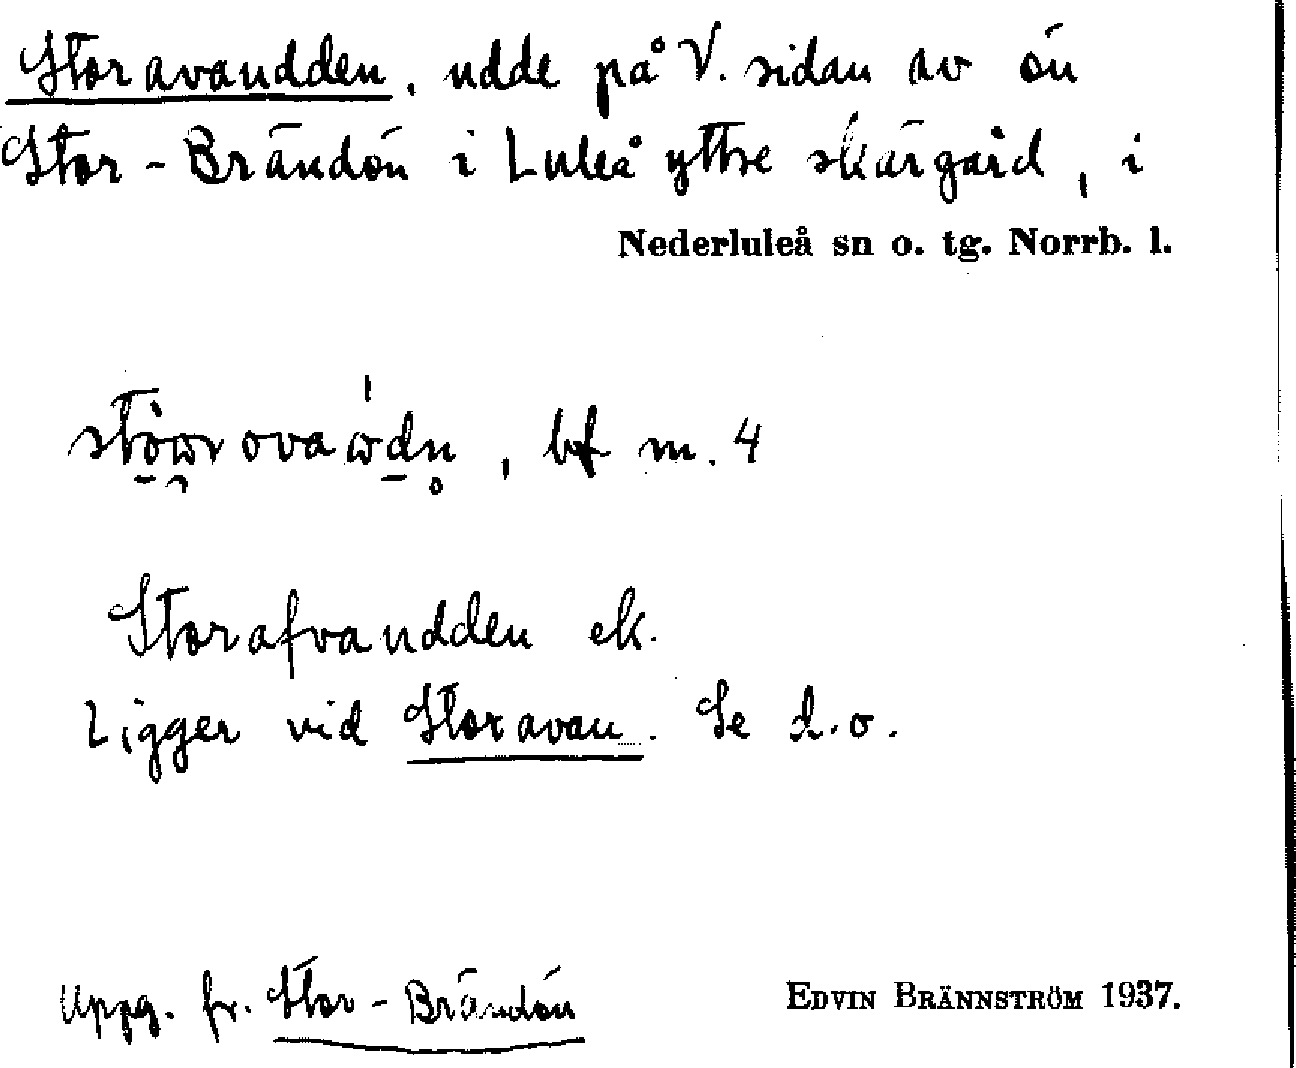 Storavandden, udde på V. sidan av ön
Stor-Brändön i Luleå yttre skärgård, i
Nederluleå sn o. tg. Norrb. l.
, bf m. 4
Storafvandden ek.
Ligger vid Storavan. Se d.o.
Uppg. fr. Stor-Brändön
EDVIN BRÄNNSTRÖM 1937.